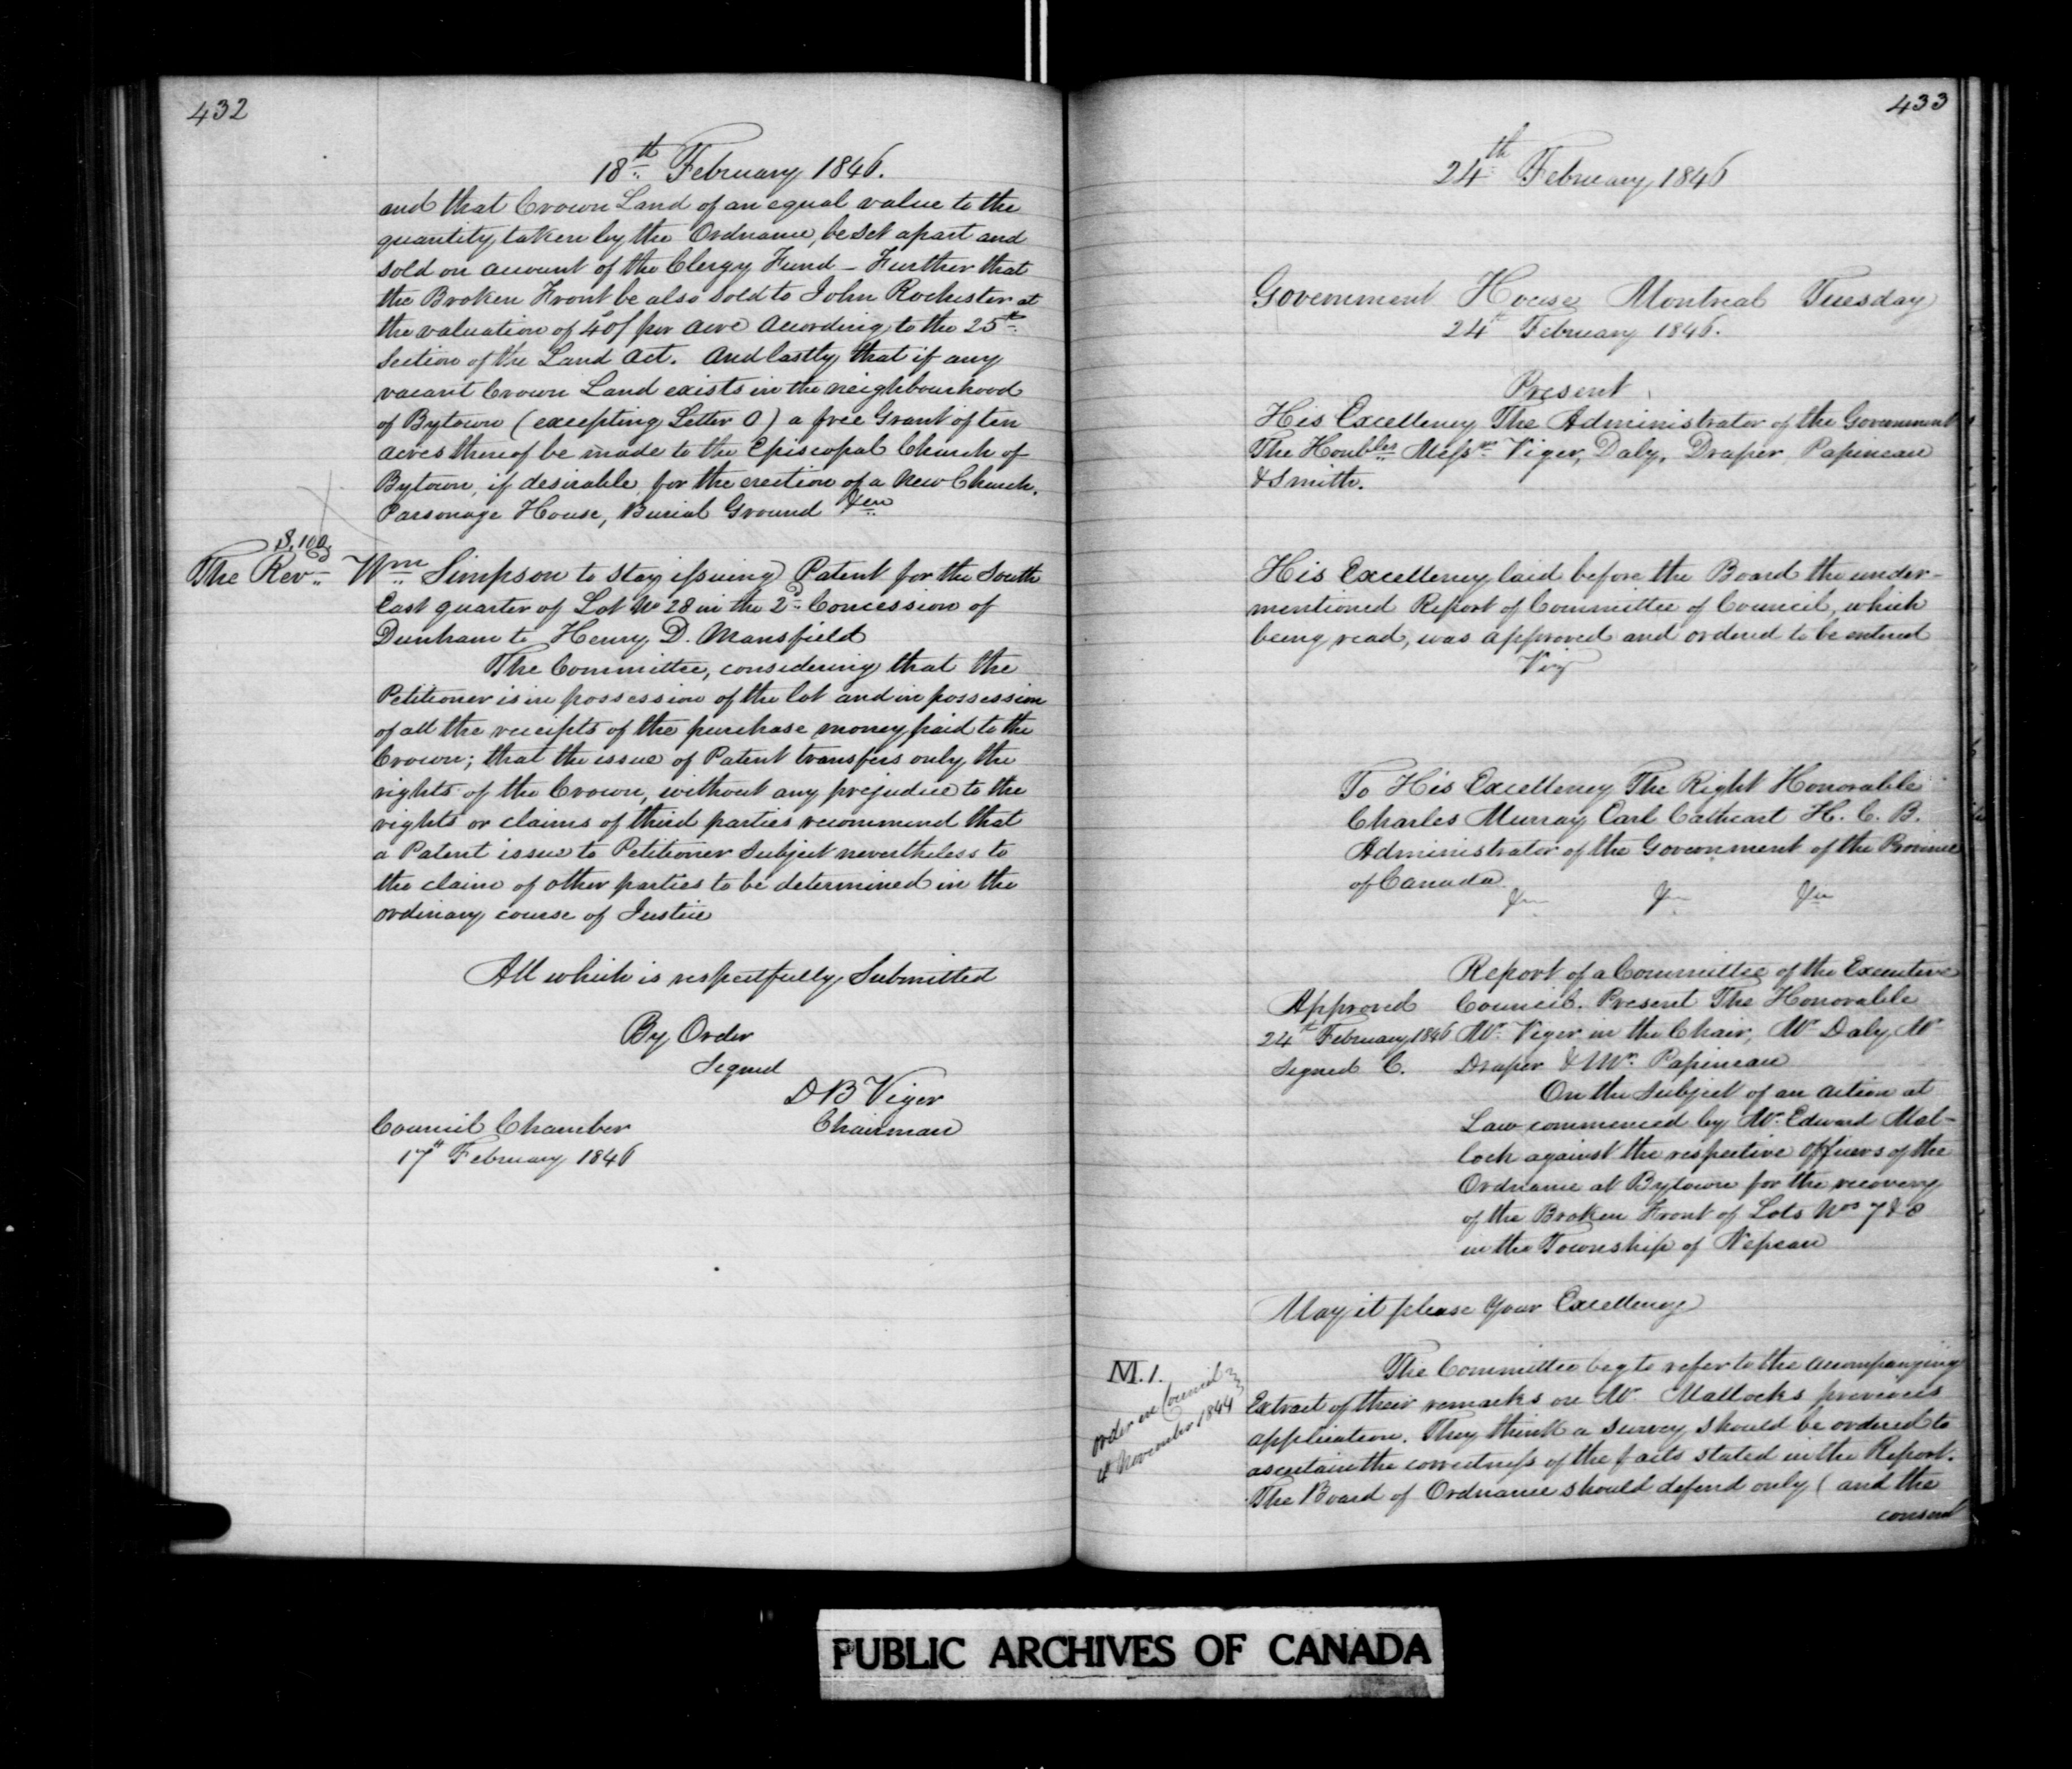 432
18th February 1846.
and that Crown Land of an equal value to the
quantity taken by the Ordnance, be set apart and
sold on account of the Clergy Fund - Further that
the Broken Front be also sold to John Rochester at
the valuation of 40/ per acre according to the 25th
Section of the Land Act. And lastly that if any
vacant Crown Land exists in the neighbourhood
of Bytown (excepting Letter O) a free Grant of ten
acres thereof be made to the Episcopal Church of
Bytown, if desirable for the erection of a New Church,
Parsonage House, Burial Ground &ca
S. 100
The Revd Wm Simpson to stay issuing Patent for the South
East quarter of Lot No 28 in the 2d Concession of
Dunham to Henry D. Mansfield
The Committee, considering that the
Petitioner is in possession of the lot and in possession
of all the receipts of the purchase money paid to the
Crown; that the issue of Patent transfers only the
rights of the Crown, without any prejudice to the
rights or claims of third parties recommend that
a Patent issue to Petitioner Subject nevertheless to
the claim of other parties to be determined in the
ordinary course of Justice
All which is respectfully Submitted
By Order
Signed
D B Viger
Council Chamber Chairman
17th February 1846
433
24th February 1846
Government House Montreal Tuesday
24th February 1846.
Present
His Excellency The Administrator of the Government
The Honbles Messrs Viger, Daly, Draper, Papineau
& Smith.
His Excellency laid before the Board the under-
mentioned Report of Committee of Council, which
being read, was approved and ordered to be entered
Viz
To His Excellency The Right Honorable
Charles Murray Earl Cathcart K. C. B.
Administrator of the Government of the Province
of Canada
&c &c &c
Report of a Committee of the Executive
Approved Council. Present The Honorable
24th February 1846 Mr Viger in the Chair, Mr Daly, Mr
Signed C. Draper & Mr Papineau
On the Subject of an action at
Law commenced by Mr Edward Mal-
loch against the respective officers of the
Ordnance at Bytown for the recovery
of the Broken Front of Lots Nos 7 & 8
in the Township of Nepean
May it please Your Excellency
M. 1.
order in Council
4 November 1844
The Committee beg to refer to the accompanying
Extract of their remarks on Mr Mallocks previous
application. They think a survey should be ordered to
ascertain the correctness of the facts stated in the Report.
The Board of Ordnance should defend only (and the
consent
PUBLIC ARCHIVES OF CANADA